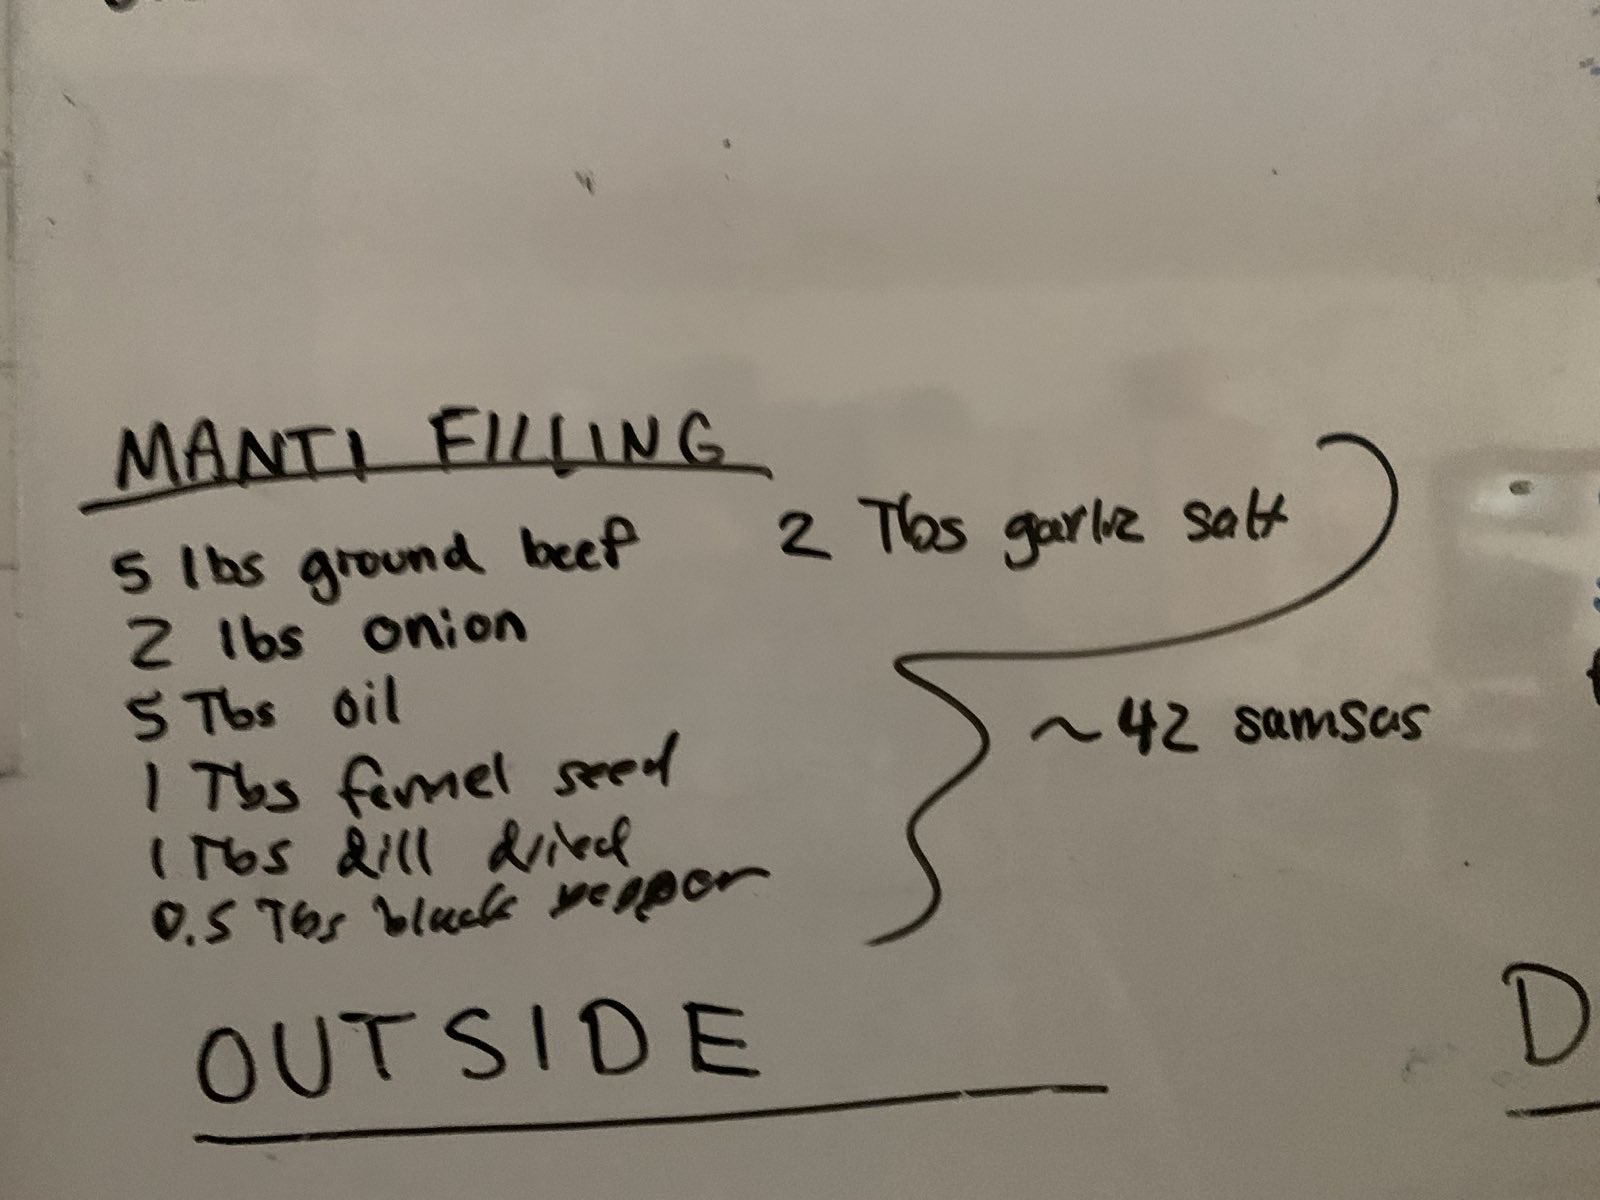 MANTI FILLING
5 lbs ground beef
2 lbs onion
5 Tbs oil
1 Tbs fennel seed
1 Tbs dill dried
0.5 Tbs black pepper
2 Tbs garlic salt
~42 samsas
OUTSIDE
D